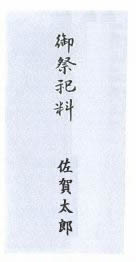 御祭祀料
佐賀太郎